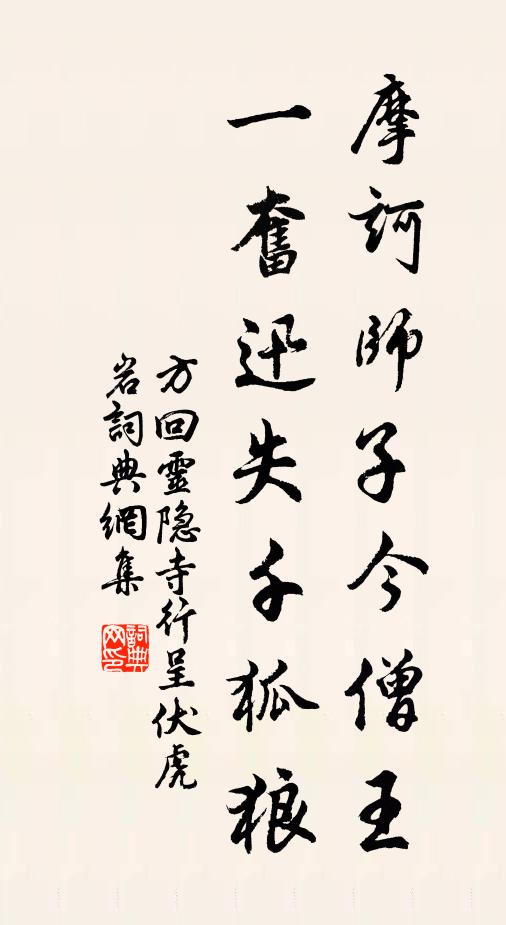 摩訶師子今僧王
一奮迅失千狐狼
方回靈隐寺行呈伏虎
岩詞典網集
詞典网印